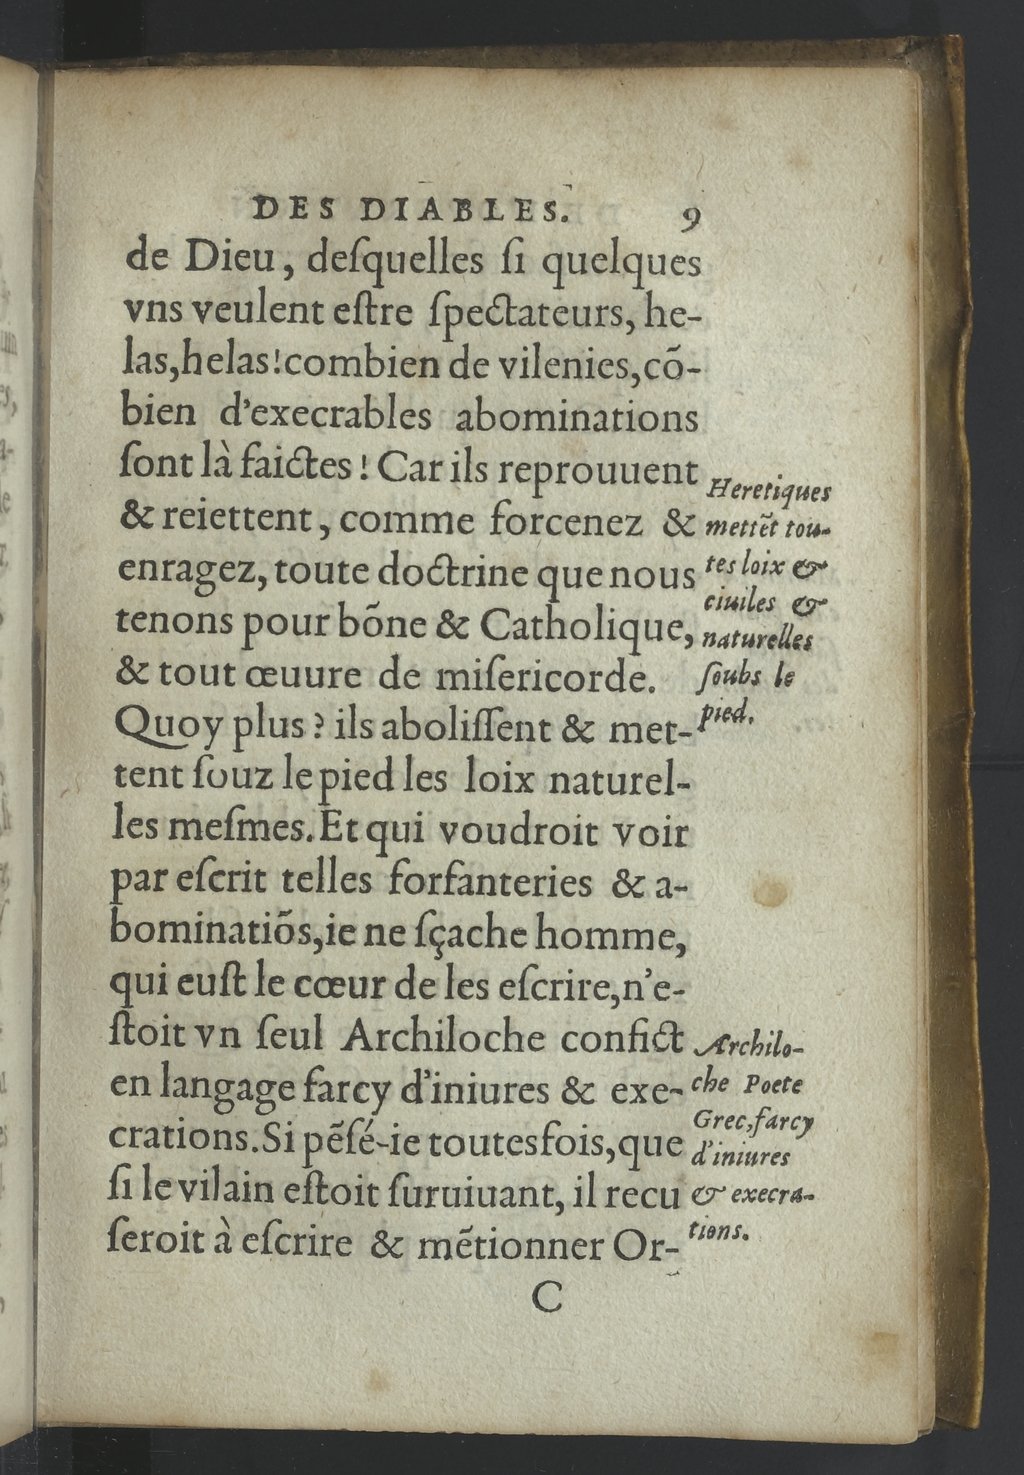 DES DIABLES. 9
de Dieu, deſquelles ſi quelques
vns veulent eſtre ſpectateurs, he-
las,helas!combien de vilenies,cõ-
bien d'execrables abominations
ſont là faictes ! Car ils reprouuent
& reiettent, comme forcenez &
enragez, toute doctrine que nous
tenons pour bõne & Catholique,
& tout œuure de miſericorde.
Quoy plus ? ils aboliſſent & met-
tent ſouz le pied les loix naturel-
les meſmes. Et qui voudroit voir
par eſcrit telles forfanteries & a-
bominatiõs,ie ne ſçache homme,
qui euſt le cœur de les eſcrire,n'e-
ſtoit vn ſeul Archiloche confict
en langage farcy d'iniures & exe-
crations.Si pẽſé-ie toutesfois,que
ſi le vilain eſtoit ſuruiuant, il recu
ſeroit à eſcrire & mẽtionner Or-
C
Heretiques
mettẽt tou-
tes loix &
ciuiles &
naturelles
ſoubs le
pied.
Archilo-
che Poete
Grec,farcy
d'iniures
& execra-
tions.